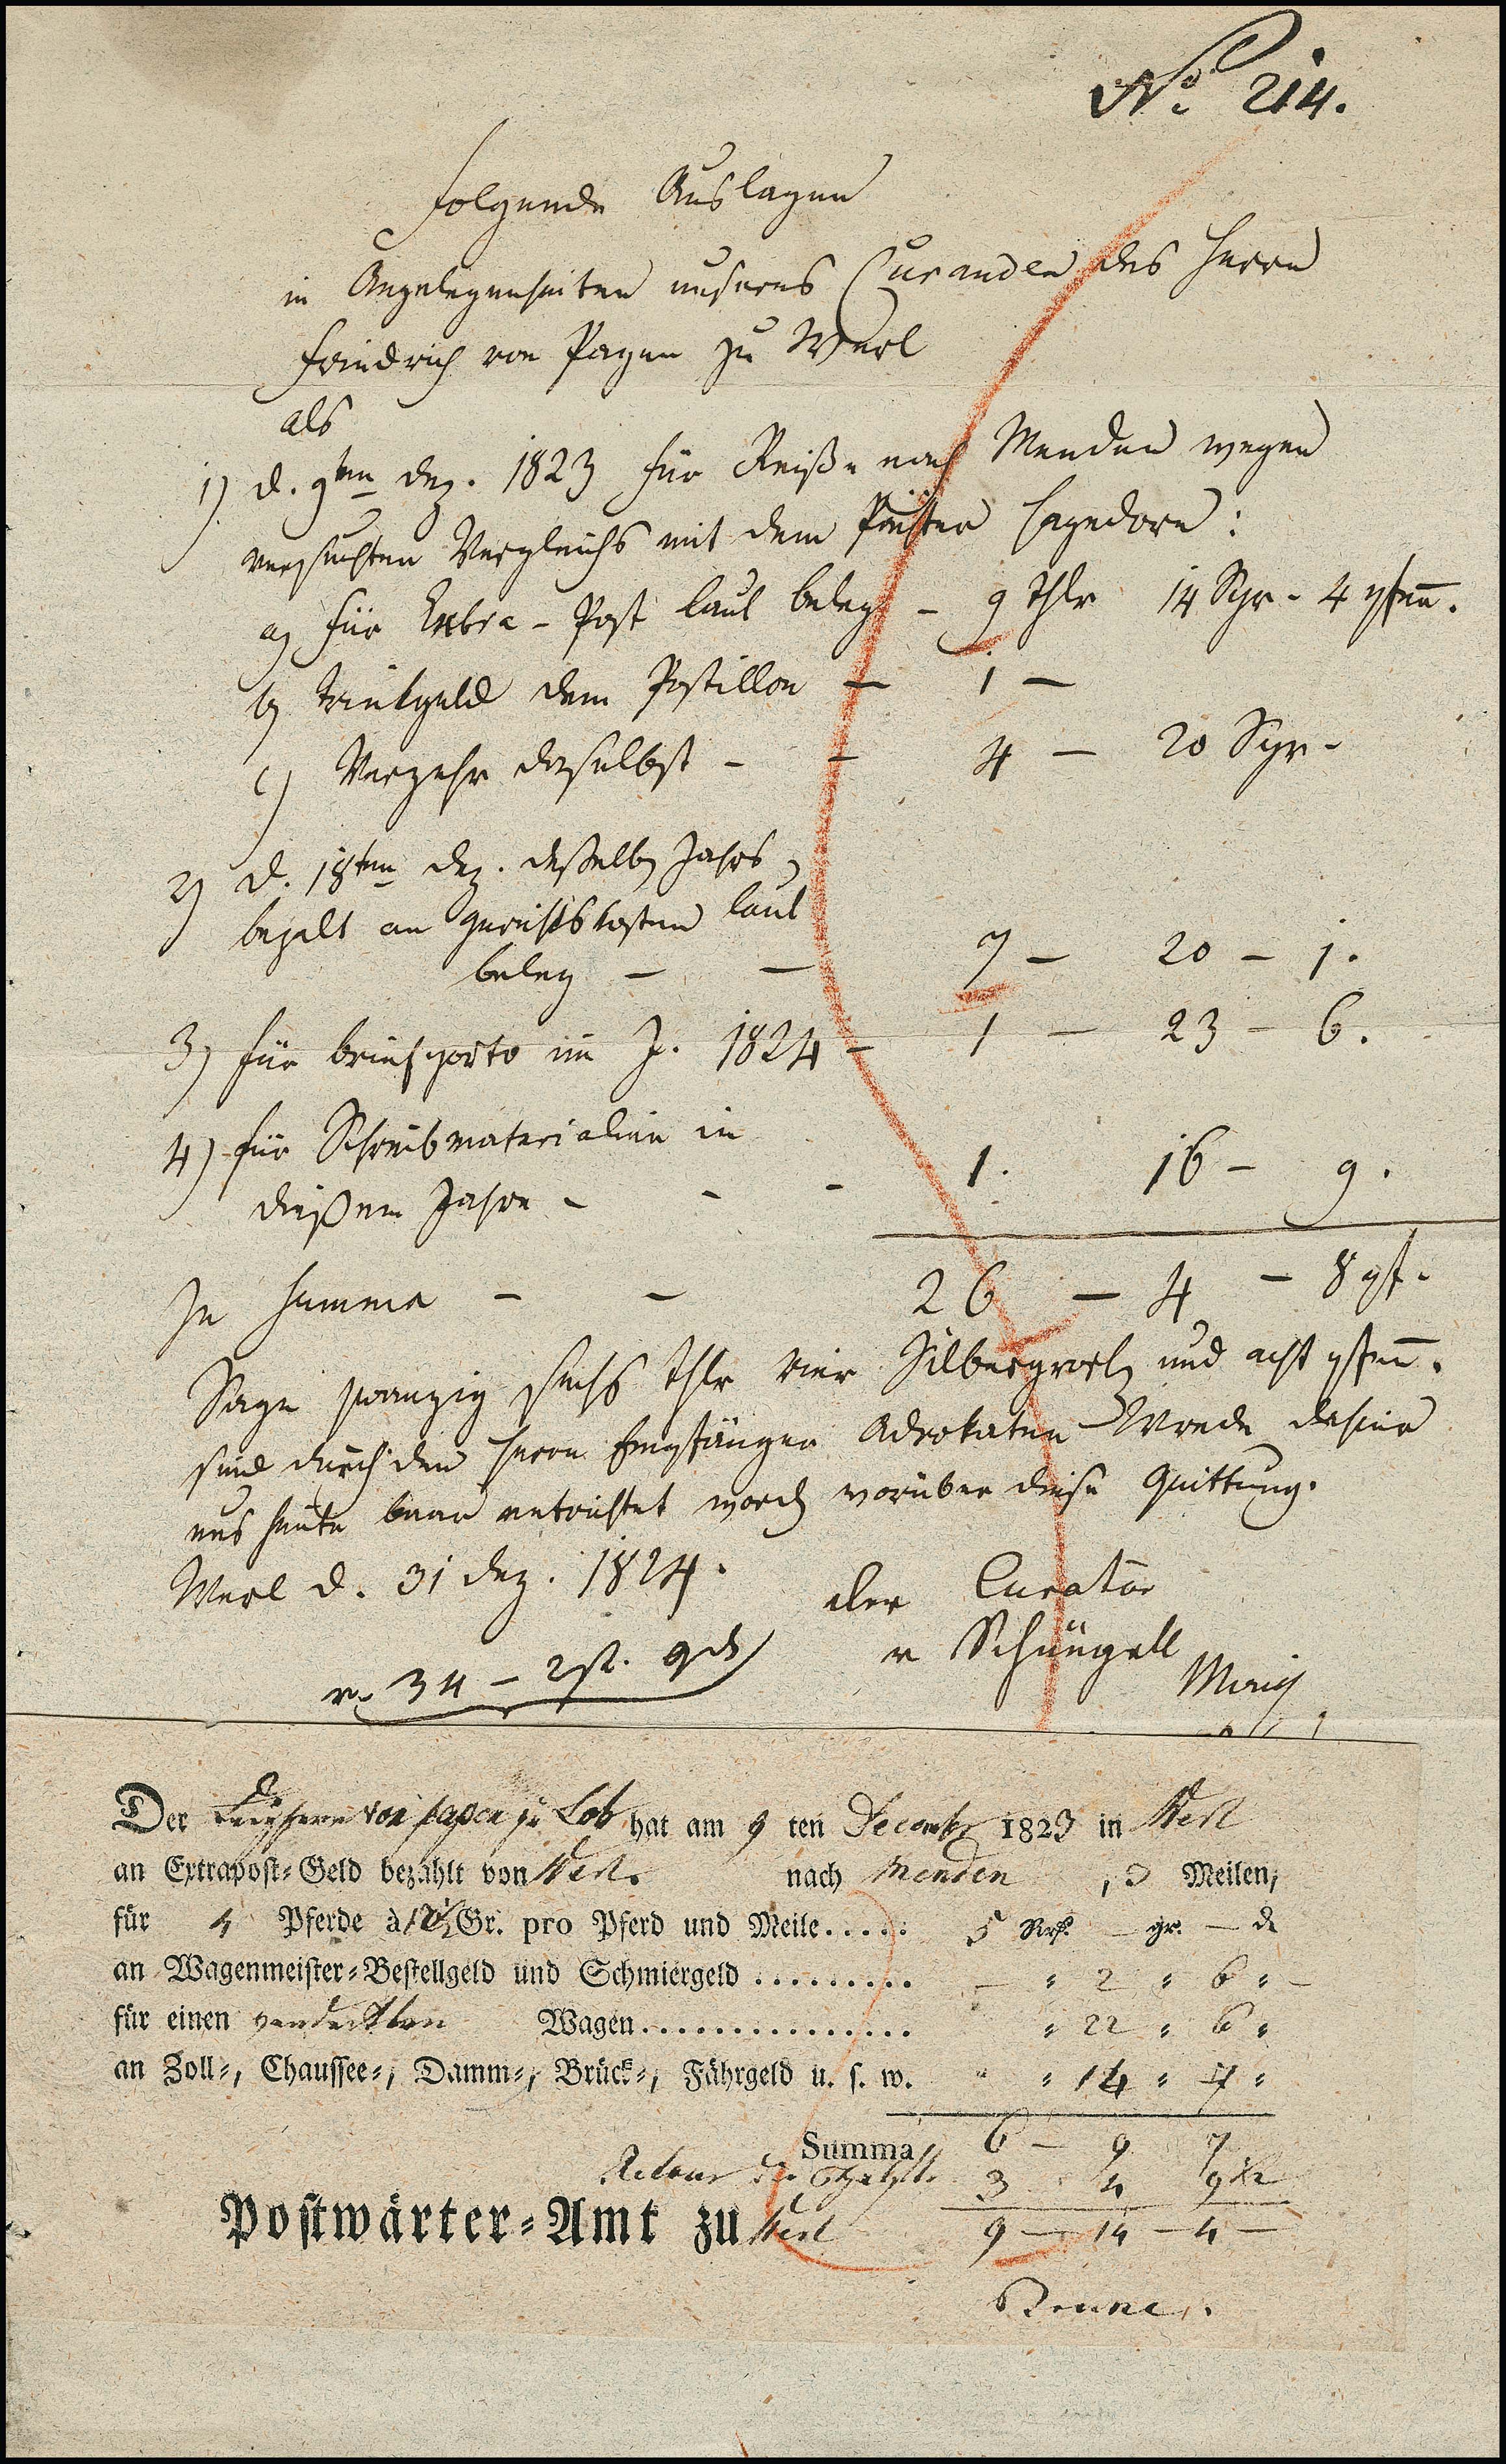 No 214.
Folgende Auslagen
in Angelegenheiten unseres Curanden des Herrn
Friedrich von Papen zu Werl
als
1) d. 9ten Dez. 1823 für Reiße nach Menden wegen
versuchten Vergleichs mit dem Hagedorn:
a) für Extra-Post laut Beleg - 9 Thlr 14 Sgr - 4 pfenn.
b) Trinkgeld dem Postillon — 1 —
c) Verzehr daselbst - - 4 — 20 Sgr -
2) d. 18ten Dez. desselb Jahrs,
bezalt an Gerichtskosten laut
Beleg — — 7 — 20 - 1.
3) für Briefporto im J. 1824 - 1 — 23 - 6.
4) für Schreibmaterialien in
dießem Jahre - - - 1. 16 - 9.
In Summa - - 26 — 4 — 8 pf.
Sage zwanzig sechs Thlr vier Silbergrosch und acht pfenn.
sind durch den Herrn Empfänger Advokaten Wrede dahier
uns heute baar entrichtet word worüber diese Quittung.
Werl d. 31 Dez. 1824.
der Curator
v Schüngell
34 - 2
Der Freyherr von papen zu Loh hat am 9 ten Decembr 1823 in Werl
an Extrapost-Geld bezahlt von Werl. nach Menden , 3 Meilen,
für 4 Pferde à 12½ Gr. pro Pferd und Meile..... 5 Rth. — gr. — d
an Wagenmeister-Bestellgeld und Schmiergeld ......... — " 2 " 6 " —
für einen verdeckten Wagen............... " 22 " 6 "
an Zoll-, Chaussee-, Damm-, Brück-, Fährgeld u. s. w. " " 14 " 7 "
Summa 6 — 9 7
Retour 3 4 9
Postwärter-Amt zu Werl 9 — 14 — 4 —
Brune.